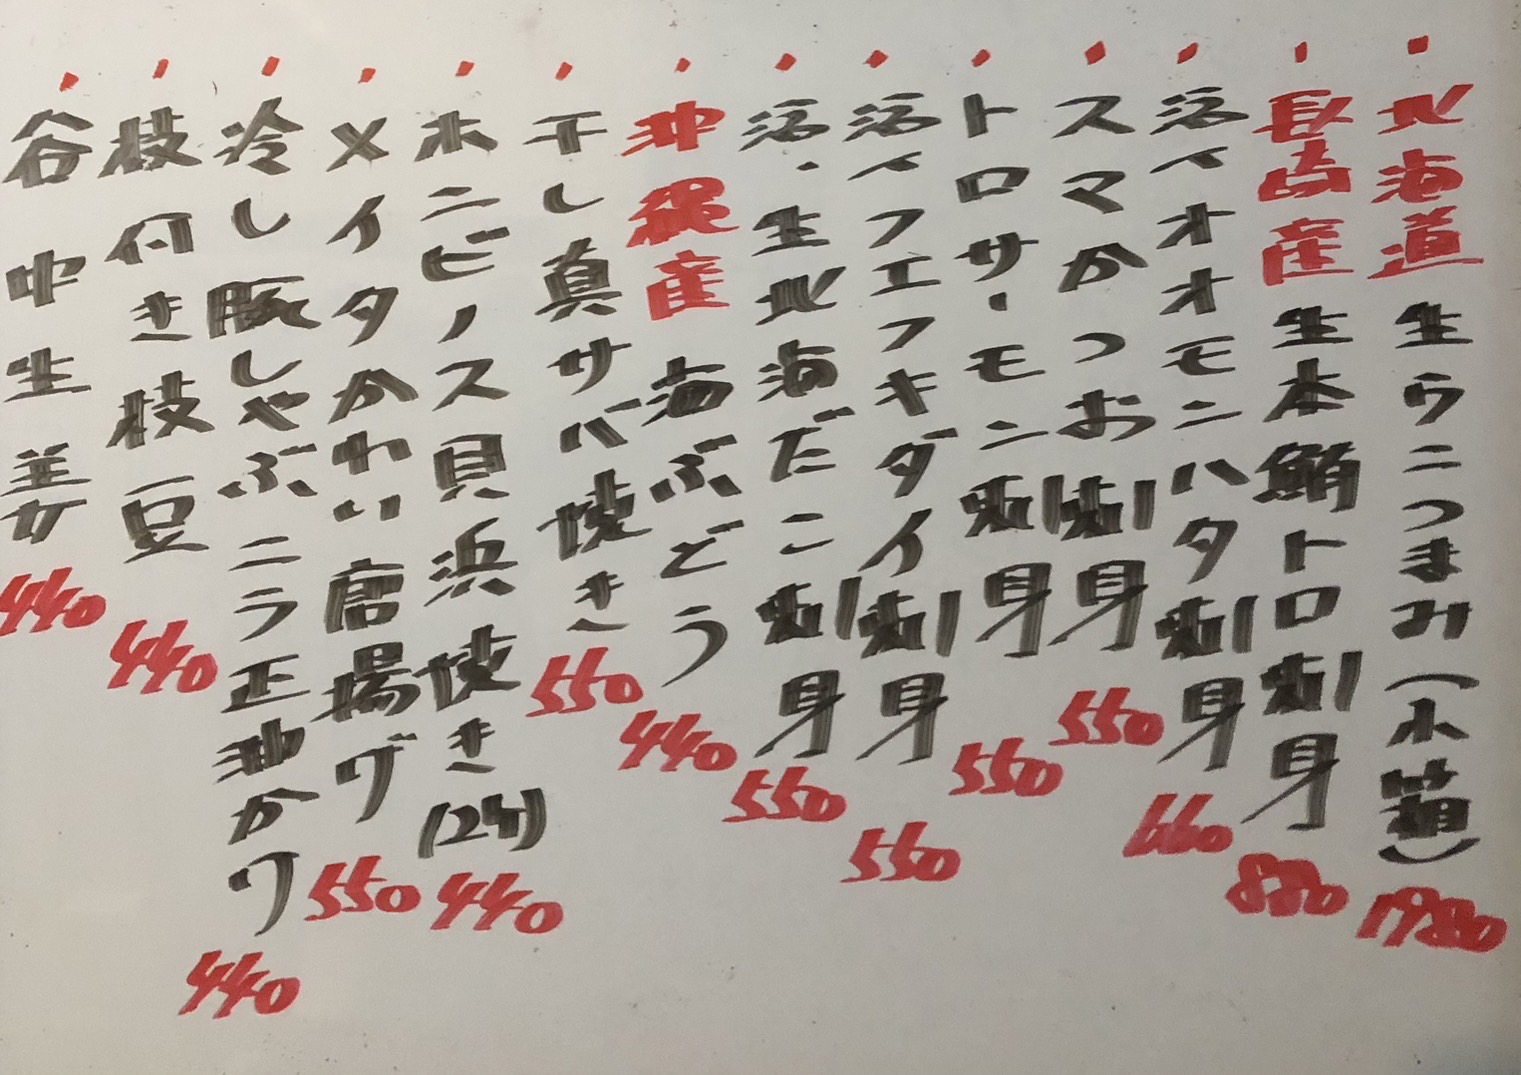 ・北海道 生ウニつまみ(小箱) 1980
・長崎産 生本鮪トロ刺身 880
・活〆オオモンハタ刺身 660
・スマかつお刺身 550
・トロサーモン刺身 550
・活〆フエフキダイ刺身 550
・活・生北海だこ刺身 550
・沖縄産 海ぶどう 440
・干し真サバ焼き 550
・ホンビノス貝浜焼き(2ケ) 440
・メイタかれい唐揚げ 550
・冷し豚しゃぶニラ正油かけ 440
・枝付き枝豆 440
・谷中生姜 440